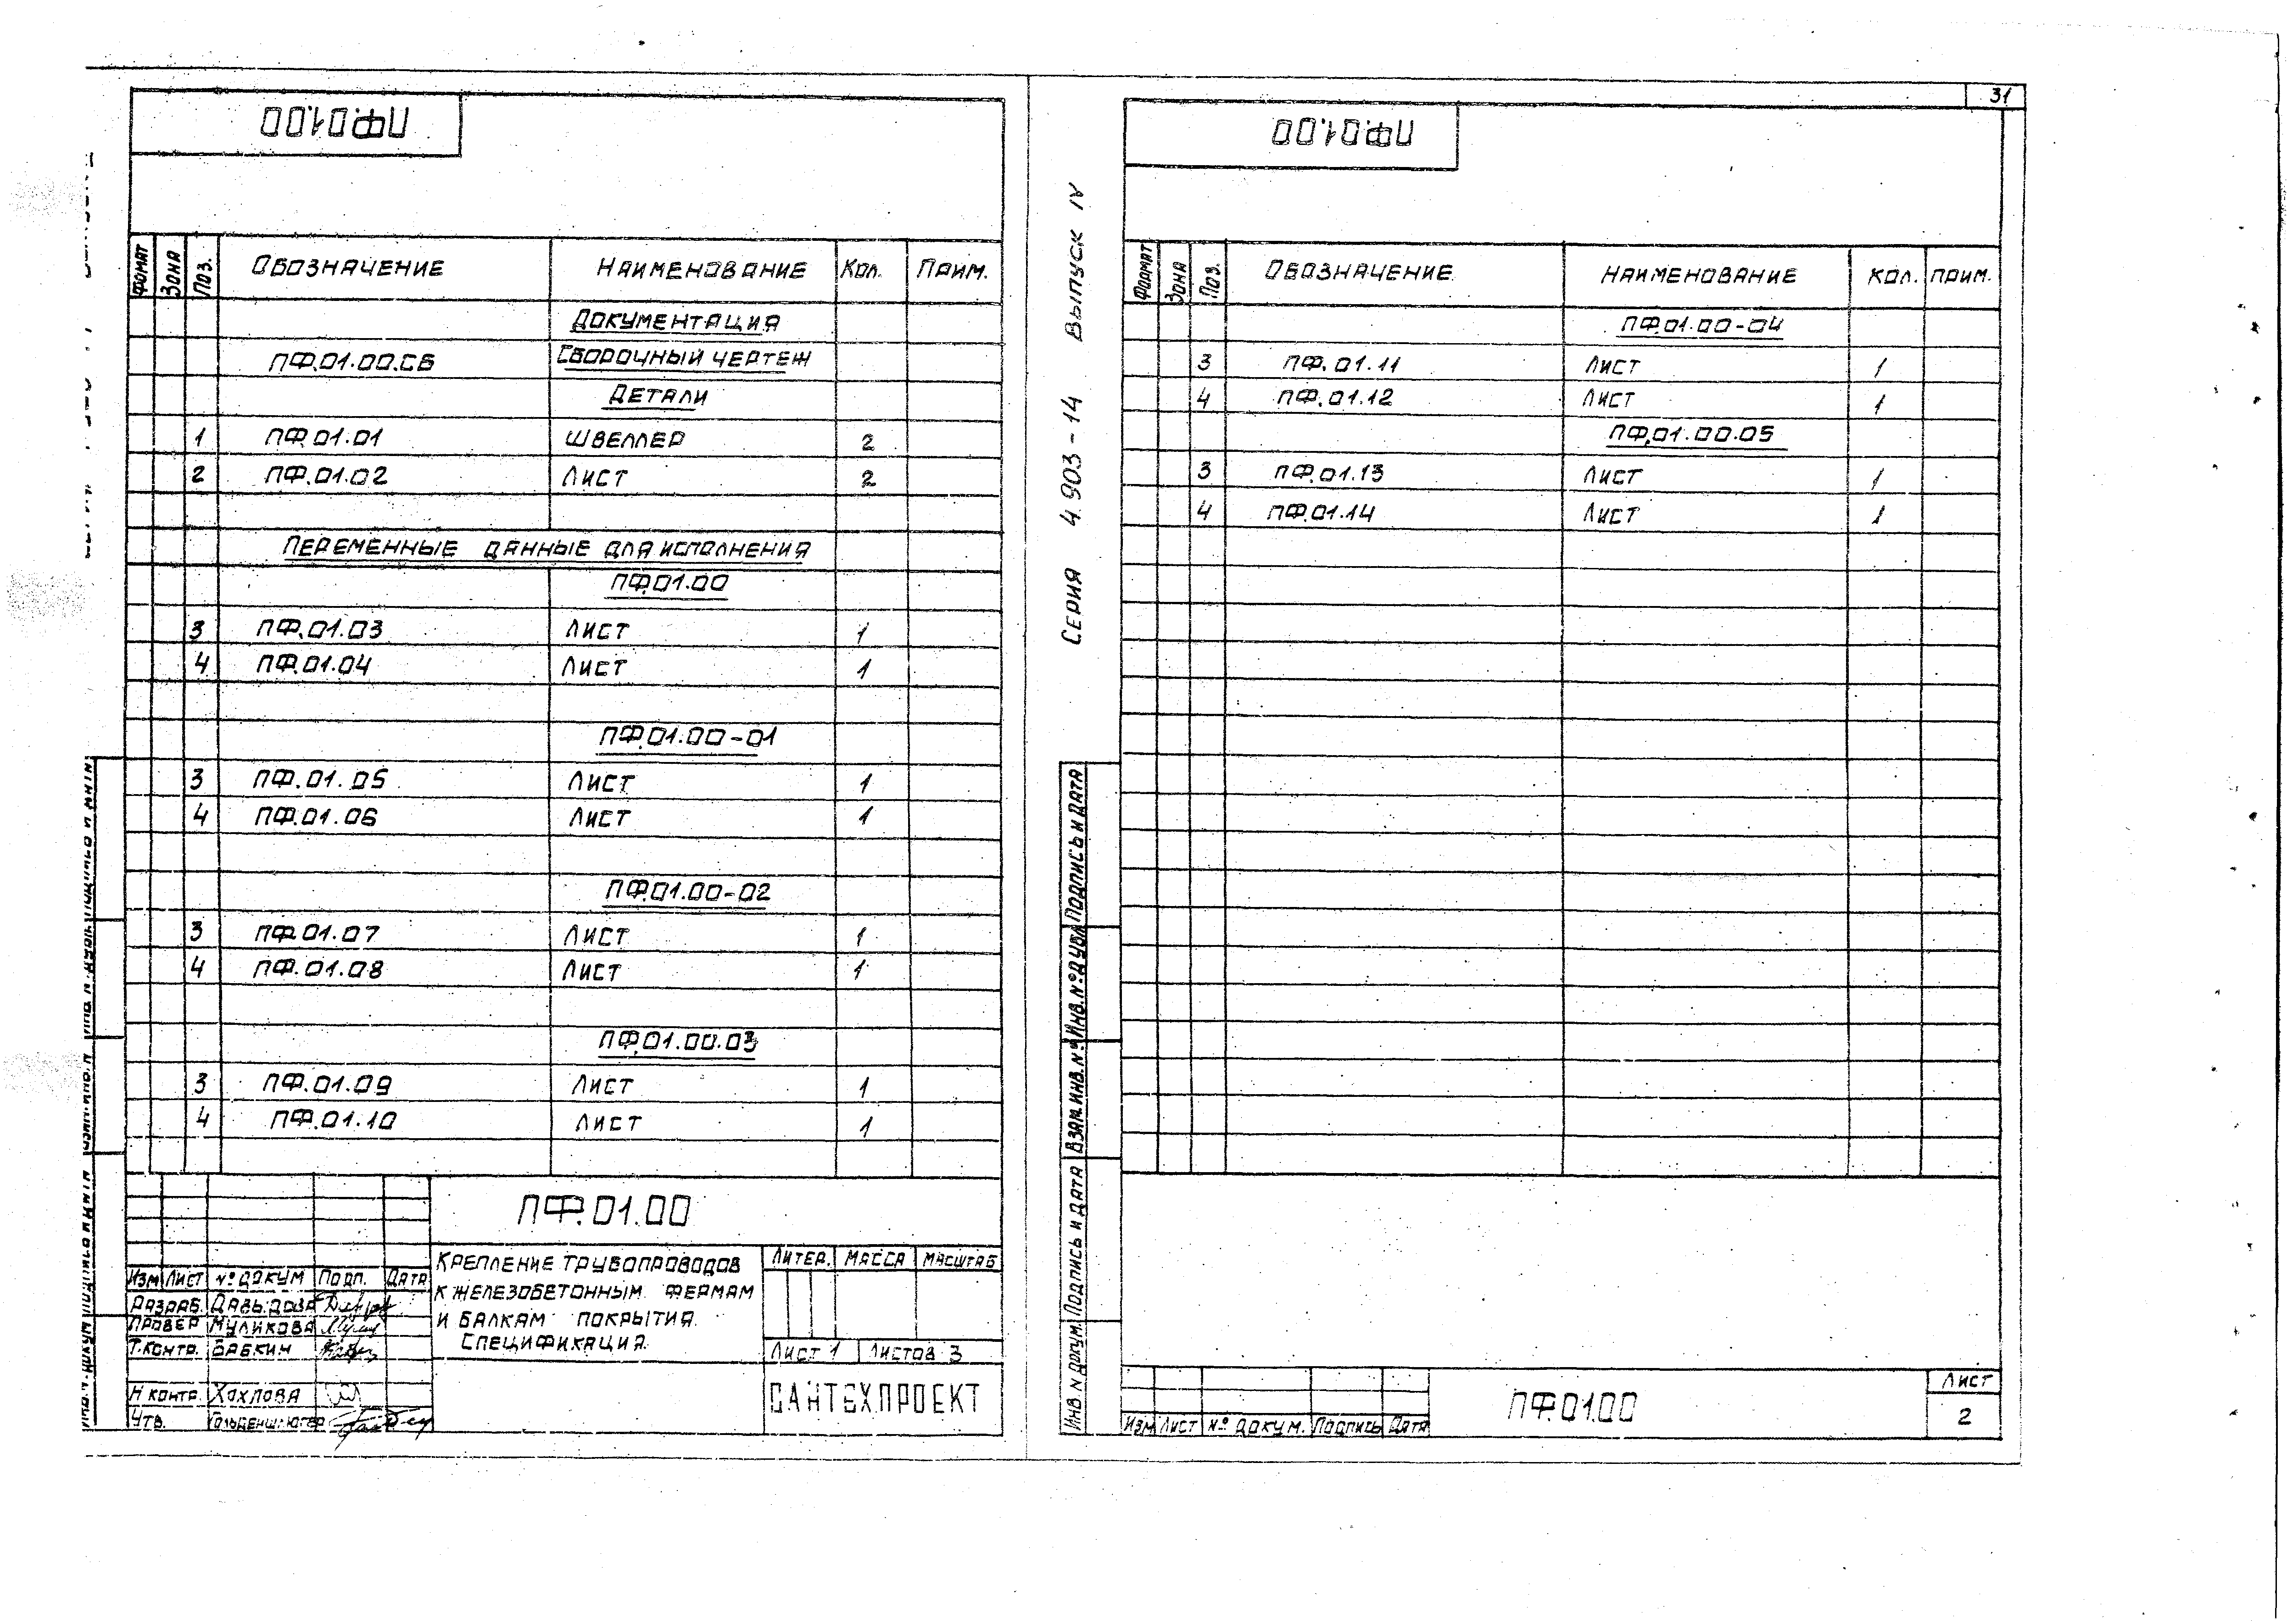 ПФ.01.00
ФОМАТ ЗОНА ПОЗ. ОБОЗНАЧЕНИЕ НАИМЕНОВАНИЕ КОЛ. ПРИМ.
ДОКУМЕНТАЦИЯ
ПФ.01.00.СБ СБОРОЧНЫЙ ЧЕРТЕЖ
ДЕТАЛИ
1 ПФ.01.01 ШВЕЛЛЕР 2
2 ПФ.01.02 ЛИСТ 2
ПЕРЕМЕННЫЕ ДАННЫЕ ДЛЯ ИСПОЛНЕНИЯ
ПФ.01.00
3 ПФ.01.03 ЛИСТ 1
4 ПФ.01.04 ЛИСТ 1
ПФ.01.00-01
3 ПФ.01.05 ЛИСТ 1
4 ПФ.01.06 ЛИСТ 1
ПФ.01.00-02
3 ПФ.01.07 ЛИСТ 1
4 ПФ.01.08 ЛИСТ 1
ПФ.01.00.03
3 ПФ.01.09 ЛИСТ 1
4 ПФ.01.10 ЛИСТ 1
ПФ.01.00
КРЕПЛЕНИЕ ТРУБОПРОВОДОВ
К ЖЕЛЕЗОБЕТОННЫМ ФЕРМАМ
И БАЛКАМ ПОКРЫТИЯ.
СПЕЦИФИКАЦИЯ.
ЛИТЕР. МАССА МАСШТАБ
ЛИСТ 1 ЛИСТОВ 3
САНТЕХПРОЕКТ
ИЗМ ЛИСТ № ДОКУМ ПОДП. ДАТА
РАЗРАБ. ДАВЫДОВА
ПРОВЕР МУЛИКОВА
Т.КОНТР. БАБКИН
Н КОНТР. ХОХЛОВА
УТВ.
31
ПФ.01.00
СЕРИЯ 4.903-14 ВЫПУСК IV
ФОРМАТ ЗОНА ПОЗ. ОБОЗНАЧЕНИЕ НАИМЕНОВАНИЕ КОЛ. ПРИМ.
ПФ.01.00-04
3 ПФ.01.11 ЛИСТ 1
4 ПФ.01.12 ЛИСТ 1
ПФ.01.00.05
3 ПФ.01.13 ЛИСТ 1
4 ПФ.01.14 ЛИСТ 1
ИНВ. N ДОКУМ. ПОДПИСЬ И ДАТА ВЗАМ. ИНВ. № ИНВ. № ДУБЛ ПОДПИСЬ И ДАТА
ИЗМ ЛИСТ № ДОКУМ. ПОДПИСЬ ДАТА
ПФ.01.00
ЛИСТ
2